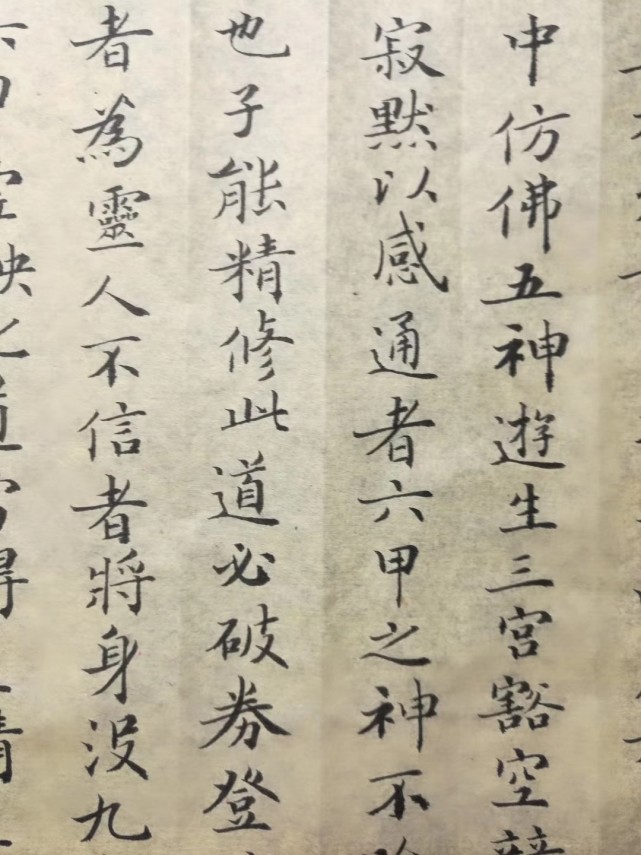 中仿佛五神遊生三宮豁空
寂默以感通者六甲之神不
也子能精修此道必破券登
者為靈人不信者將身沒九